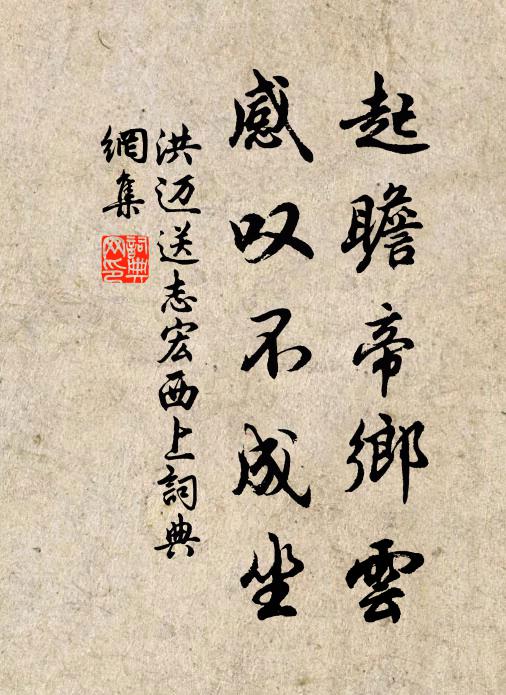 起瞻帝鄉雲
感叹不成坐
洪迈送志宏西上詞典
網集
詞典
网印